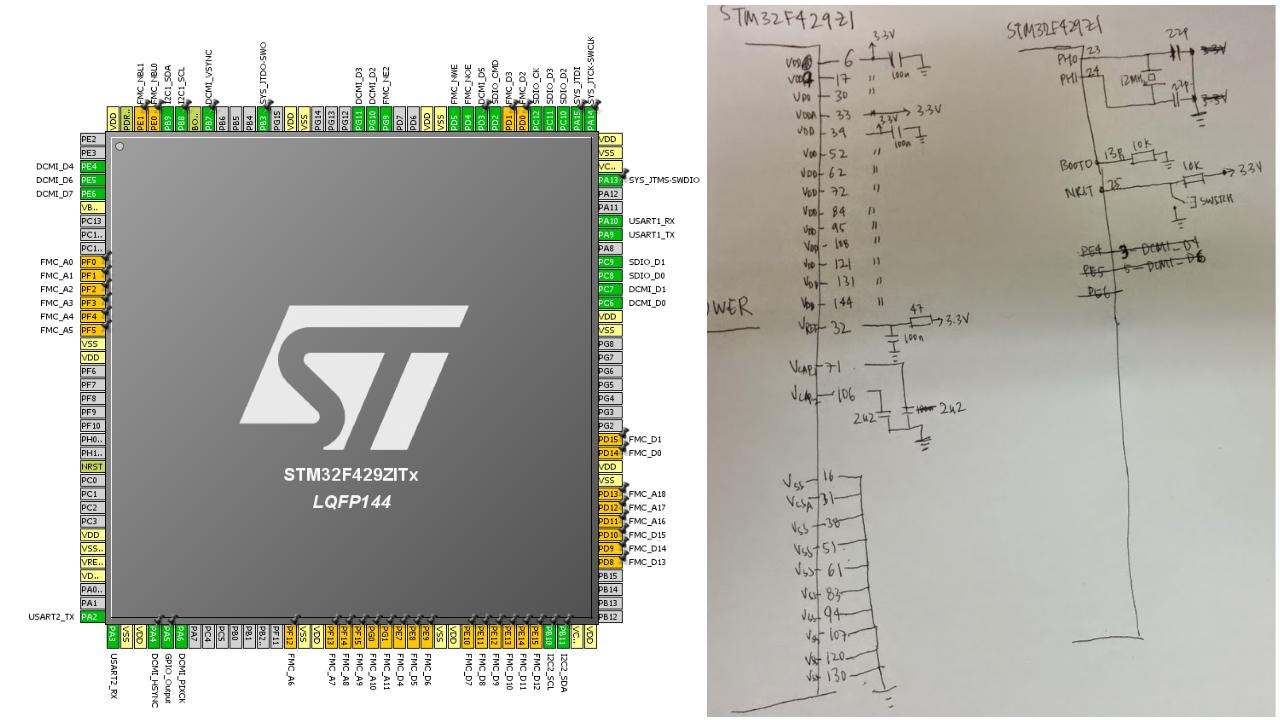 FMC_NBL1 FMC_NBL0 I2C1_SDA I2C1_SCL DCMI_VSYNC SYS_JTDO-SWO DCMI_D3 DCMI_D2 FMC_NE2 FMC_NWE FMC_NOE DCMI_D5 SDIO_CMD FMC_D3 FMC_D2 SDIO_CK SDIO_D3 SDIO_D2 SYS_JTDI SYS_JTCK-SWCLK
VDD PDR.. PE1 PE0 PB9 PB8 BO.. PB7 PB6 PB5 PB4 PB3 PG15 VDD VSS PG14 PG13 PG12 PG11 PG10 PG9 PD7 PD6 VDD VSS PD5 PD4 PD3 PD2 PD1 PD0 PC12 PC11 PC10 PA15 PA14
PE2
PE3
DCMI_D4 PE4
DCMI_D6 PE5
DCMI_D7 PE6
VB..
PC13
PC1..
PC1..
FMC_A0 PF0
FMC_A1 PF1
FMC_A2 PF2
FMC_A3 PF3
FMC_A4 PF4
FMC_A5 PF5
VSS
VDD
PF6
PF7
PF8
PF9
PF10
PH0..
PH1..
NRST
PC0
PC1
PC2
PC3
VDD
VSS..
VRE..
VD..
PA0..
PA1
USART2_TX PA2
STM32F429ZITx
LQFP144
VDD
VSS
VC..
PA13 SYS_JTMS-SWDIO
PA12
PA11
PA10 USART1_RX
PA9 USART1_TX
PA8
PC9 SDIO_D1
PC8 SDIO_D0
PC7 DCMI_D1
PC6 DCMI_D0
VDD
VSS
PG8
PG7
PG6
PG5
PG4
PG3
PG2
PD15 FMC_D1
PD14 FMC_D0
VDD
VSS
PD13 FMC_A18
PD12 FMC_A17
PD11 FMC_A16
PD10 FMC_D15
PD9 FMC_D14
PD8 FMC_D13
PB15
PB14
PB13
PB12
PA3 VSS VDD PA4 PA5 PA6 PA7 PC4 PC5 PB0 PB1 PB2.. PF11 PF12 VSS VDD PF13 PF14 PF15 PG0 PG1 PE7 PE8 PE9 VSS VDD PE10 PE11 PE12 PE13 PE14 PE15 PB10 PB11 VC.. VDD
USART2_RX DCMI_HSYNC GPIO_Output DCMI_PIXCK FMC_A6 FMC_A7 FMC_A8 FMC_A9 FMC_A10 FMC_A11 FMC_D4 FMC_D5 FMC_D6 FMC_D7 FMC_D8 FMC_D9 FMC_D10 FMC_D11 FMC_D12 I2C2_SCL I2C2_SDA
STM32F429ZI
VDD 6 3.3V 100n
VDD 17 "
VDD 30 "
VDDA 33 3.3V
VDD 39 3.3V 100n
VDD 52 "
VDD 62 "
VDD 72 "
VDD 84 "
VDD 95 "
VDD 108 "
VDD 121 "
VDD 131 "
VDD 144 "
OWER
VREF 32 47 3.3V
100n
VCAP1 71
VCAP2 106
2u2 2u2
VSS 16
VSSA 31
VSS 38
VSS 51
VSS 61
VSS 83
VSS 94
VSS 107
VSS 120
VSS 130
STM32F429ZI
PH0 23 22p 3.3V
PH1 24 12MHz 22p 3.3V
BOOT0 138 10K
NRST 25 10K 3.3V
SWITCH
PE4 3 DCMI_D4
PE5 5 DCMI_D6
PE6